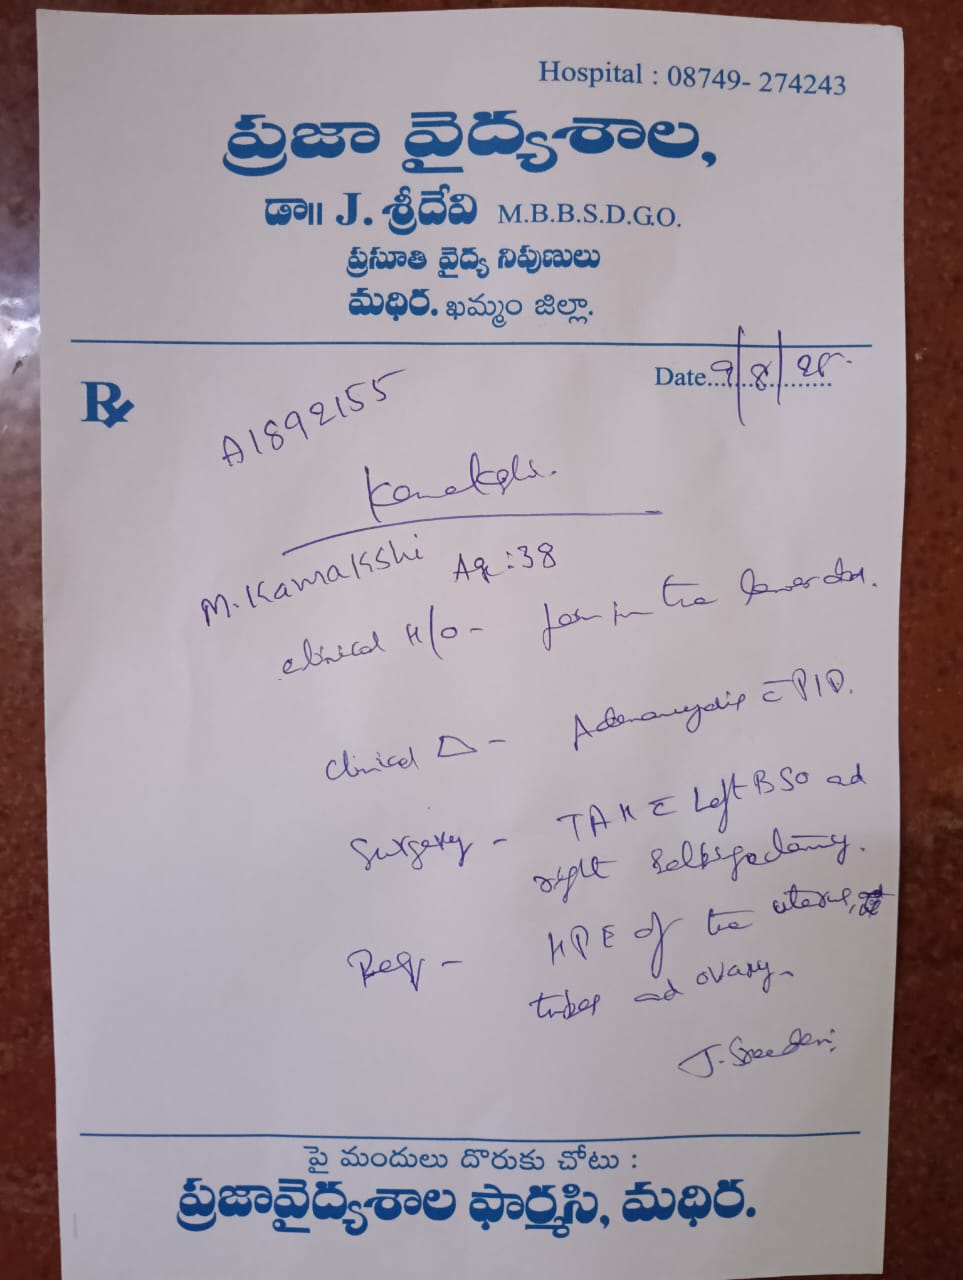 Hospital : 08749- 274243
ప్రజా వైద్యశాల,
డా॥ J. శ్రీదేవి M.B.B.S.D.G.O.
ప్రసూతి వైద్య నిపుణులు
మధిర. ఖమ్మం జిల్లా.
Rx
Date 9/8/25.
A1892155
Kamakshi.
M. Kamakshi Age: 38
Clinical H/o - Pain in the lower abd.
Clinical Δ - Adenomyosis c̄ PID.
Surgery - TAH c̄ Left BSO ad
right Salpingectomy.
Req - HPE of the uterus,
tubes ad ovary.
J. Sreedevi
పై మందులు దొరుకు చోటు :
ప్రజావైద్యశాల ఫార్మసి, మధిర.